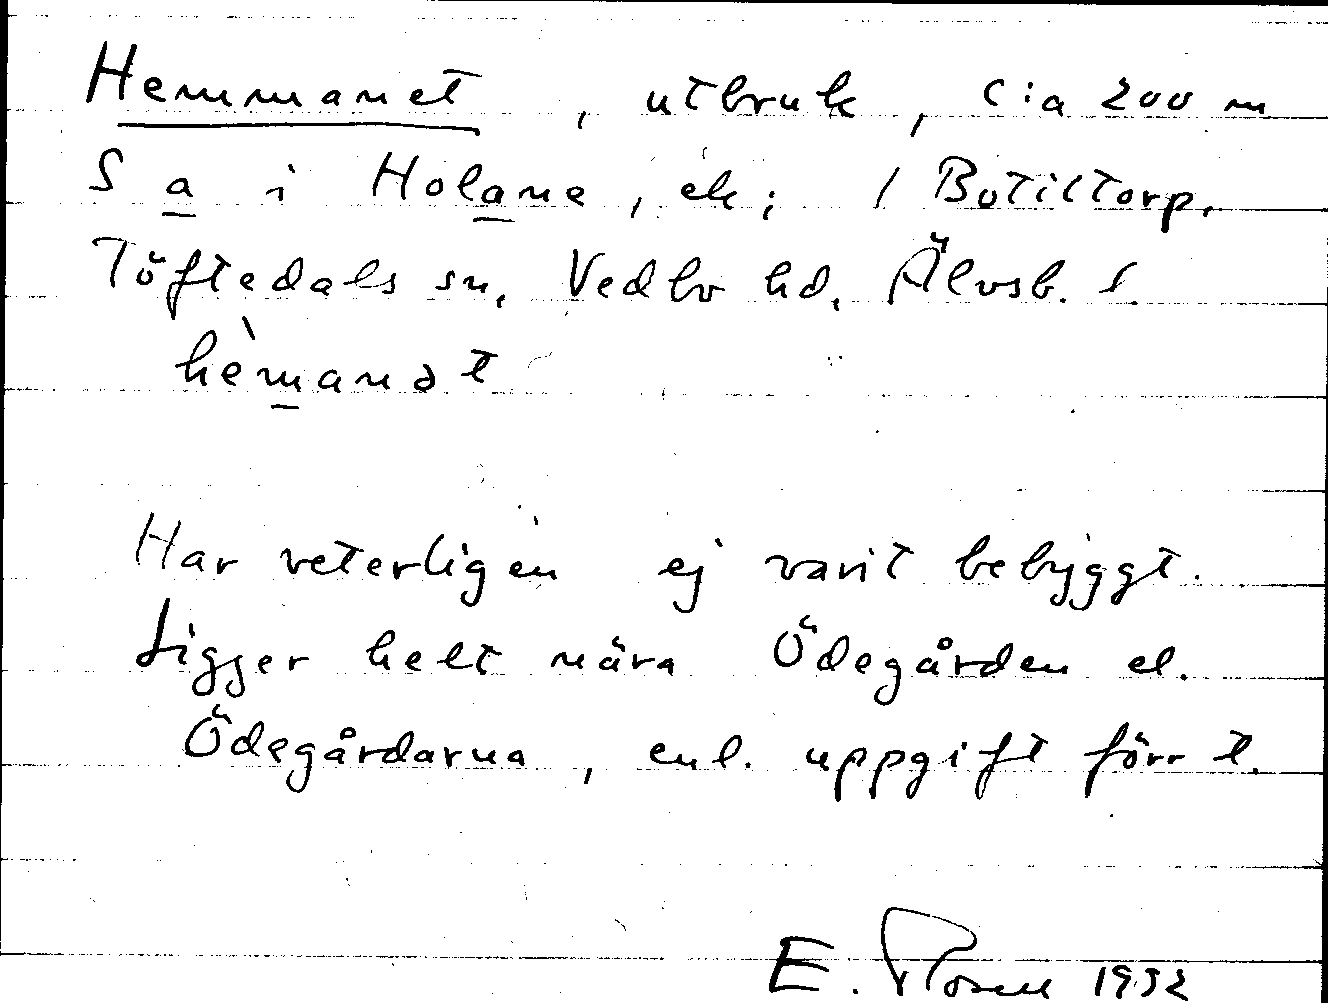 Hemmanet, utbruk, c:a 200 m
S a i Holane, ek; 1 Botiltorp,
Töftedals sn, Vedbo hd, Älvsb. l.
hèmanət
Har veterligen ej varit bebyggt.
Ligger helt nära Ödegården el.
Ödegårdarna, enl. uppgift förr t.
E. Rosell 1932